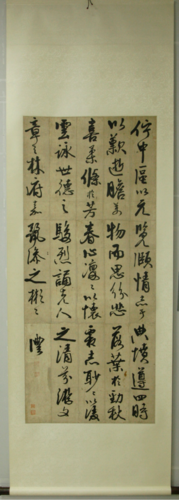 佇中區以元覽頤情志于典墳遵四時
以歎逝瞻万物而思紛悲落葉於勁秋
喜柔條於芳春心凜〻以懷霜志眇〻以凌
雲詠世德之駿烈誦先人之清芬游文
章之林府嘉麗藻之彬〻